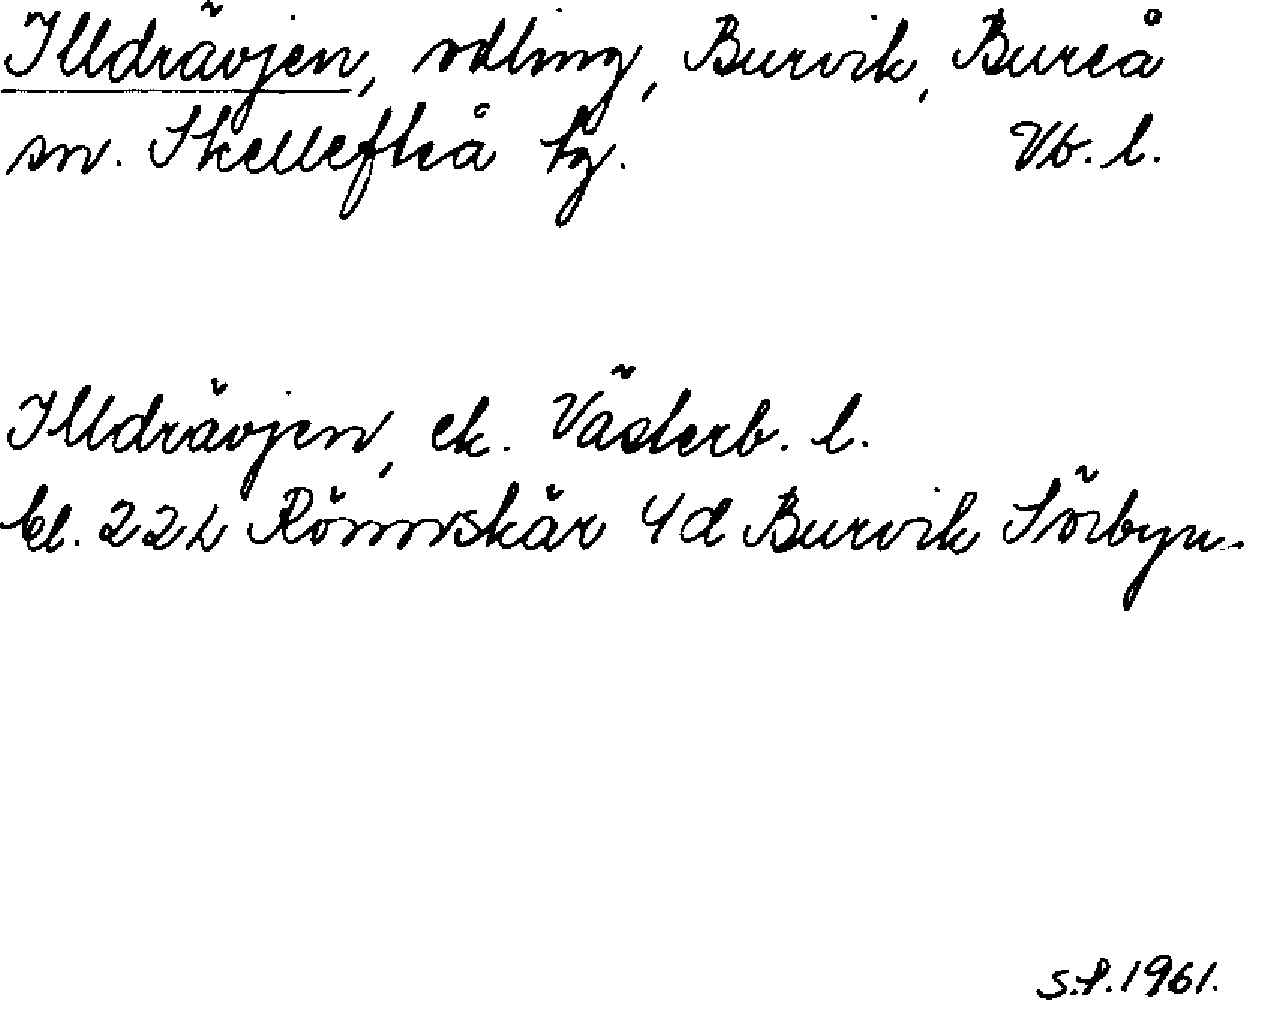 Illdrävjen, odling, Burvik, Bureå
sn. Skellefteå tg. Vb. l.
Illdrävjen, ek. Västerb. l.
bl. 22L Rönnskär 4d Burvik Sörbyn.
S.P. 1961.